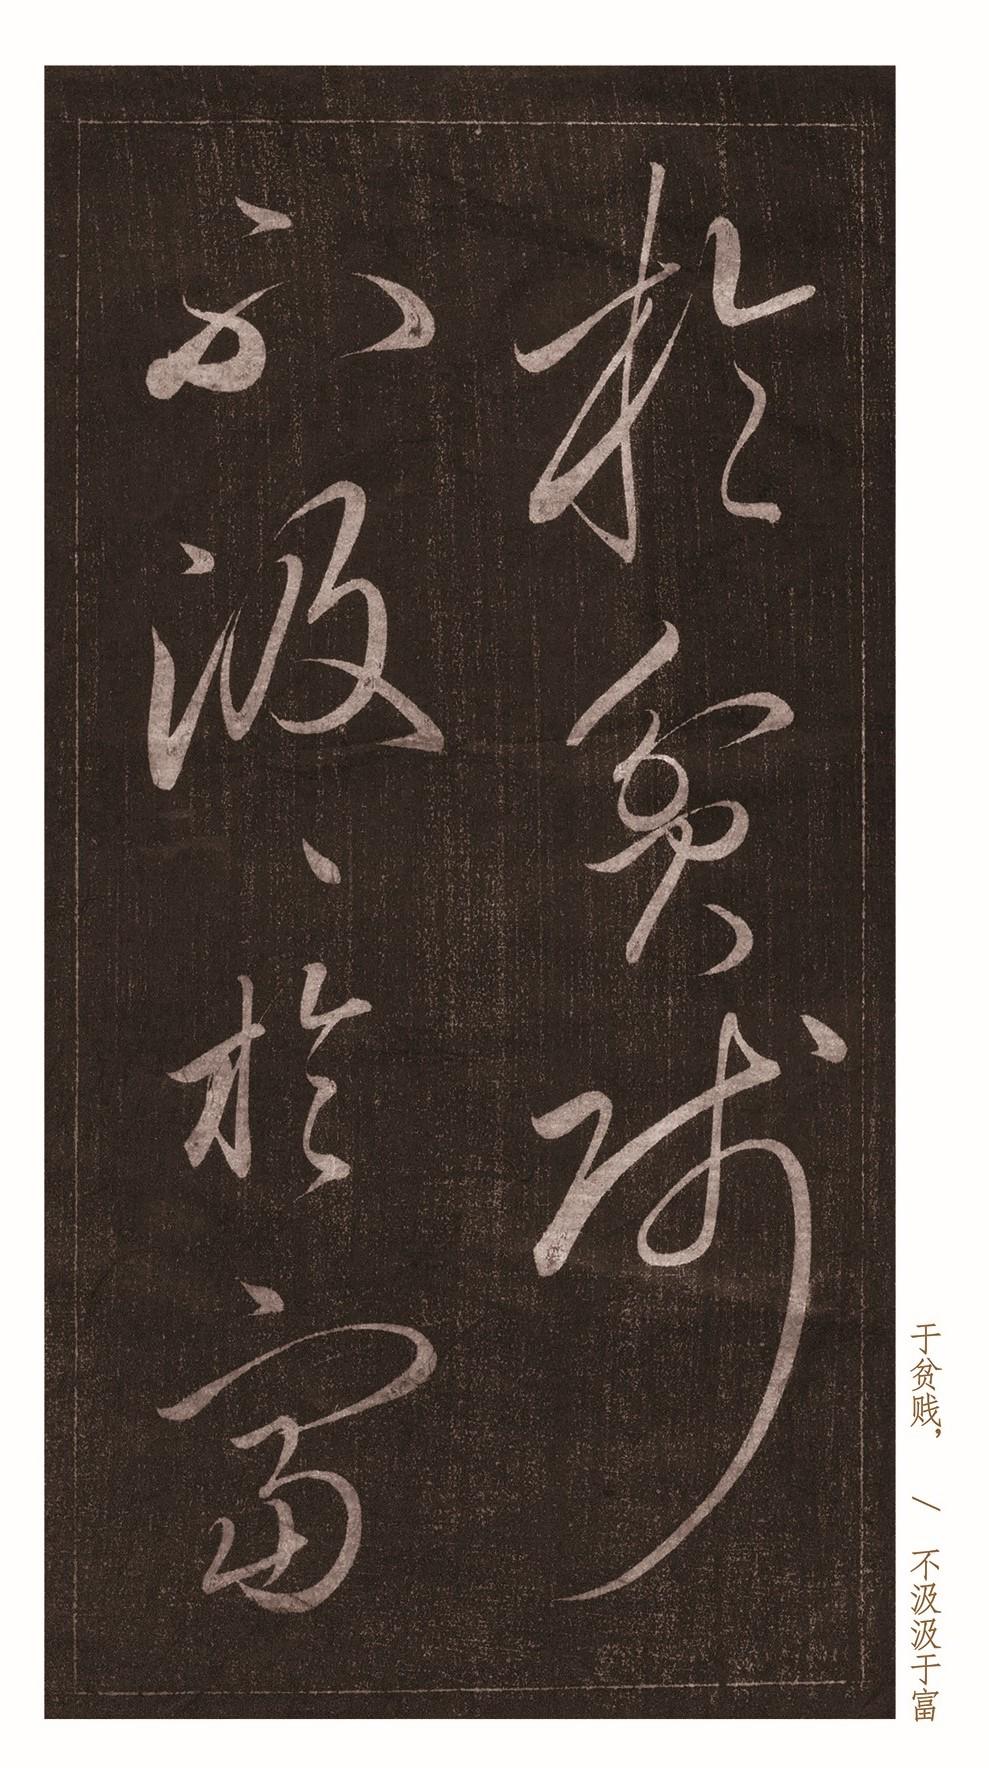 於貧賤
不汲汲於富
于贫贱， / 不汲汲于富